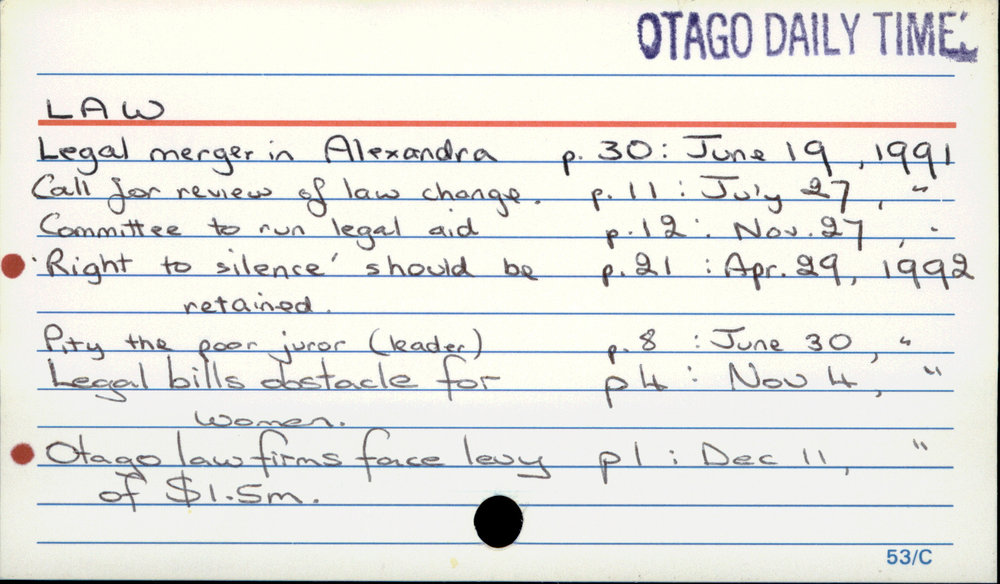 OTAGO DAILY TIMES
LAW
Legal merger in Alexandra p. 30: June 19, 1991
Call for review of law change. p. 11 : July 27, "
Committee to run legal aid p.12 : Nov. 27, "
'Right to silence' should be p.21 : Apr. 29, 1992
retained.
Pity the poor juror (leader) p. 8 : June 30, "
Legal bills obstacle for p4 : Nov 4, "
women.
Otago law firms face levy p1 : Dec 11, "
of $1.5m.
53/C